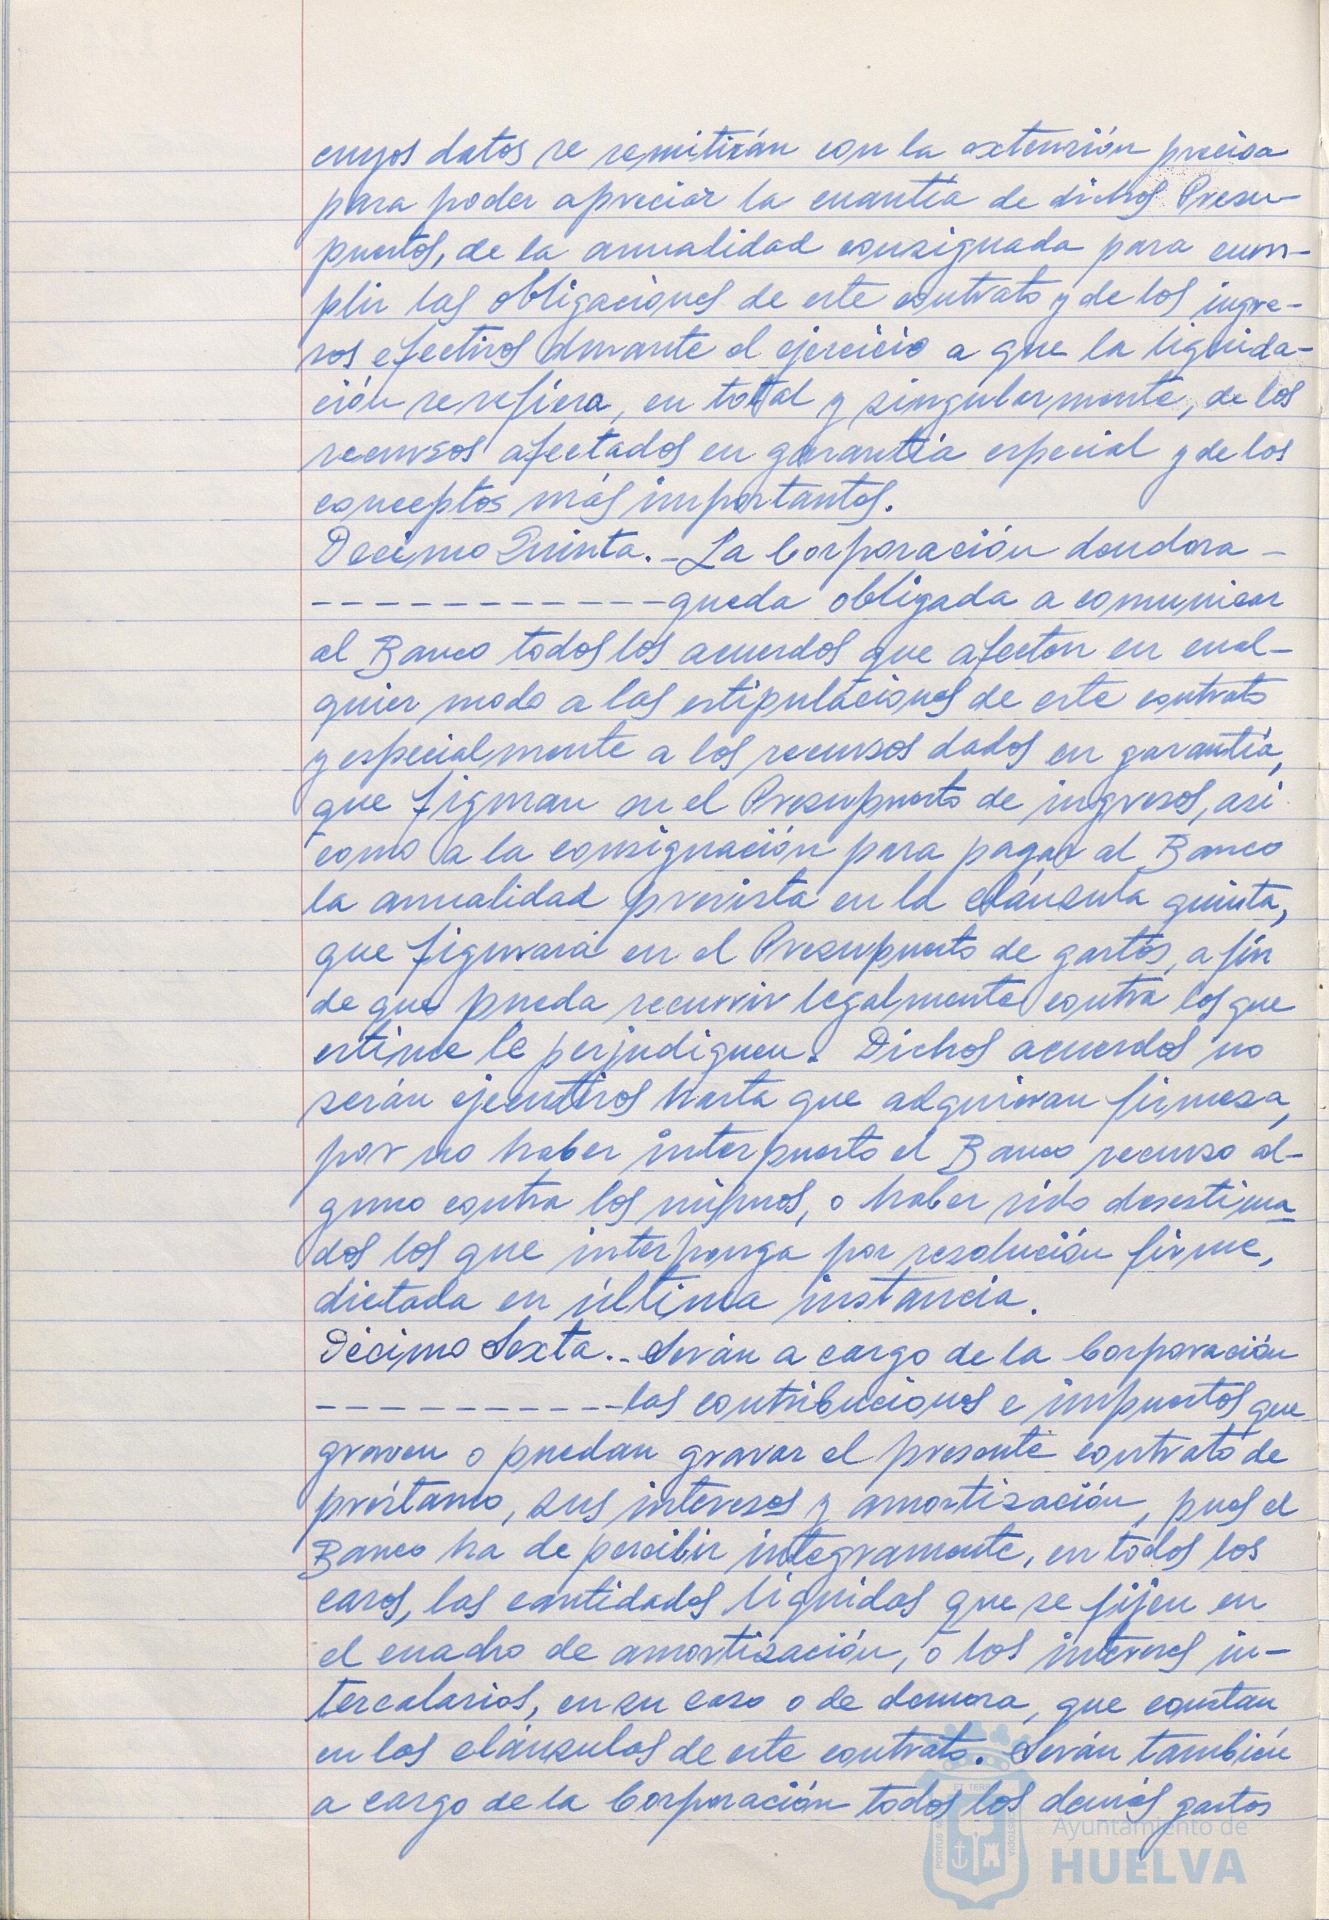 cuyos datos se remitirán con la extensión precisa
para poder apreciar la cuantía de dichos Presu-
puestos, de la anualidad consignada para cum-
plir las obligaciones de este contrato y de los ingre-
sos efectivos durante el ejercicio a que la liquida-
ción se refiera, en total y singularmente, de los
recursos afectados en garantía especial y de los
conceptos más importantes.
Decimo Quinta.- La Corporación deudora -
------------queda obligada a comunicar
al Banco todos los acuerdos que afecten en cual-
quier modo a las estipulaciones de este contrato
y especialmente a los recursos dados en garantía,
que figuran en el Presupuesto de ingresos, asi
como a la consignación para pagar al Banco
la anualidad prevista en la cláusula quinta,
que figurará en el Presupuesto de gastos, a fin
de que pueda recurrir legalmente contra los que
estime le perjudiquen. Dichos acuerdos no
serán ejecutivos hasta que adquieran firmeza,
por no haber interpuesto el Banco recurso al-
guno contra los mismos, o haber sido desestima-
dos los que interponga por resolución firme,
dictada en última instancia.
Décimo Sexta.- Serán a cargo de la Corporación
-----------las contribuciones e impuestos que
graven o puedan gravar el presente contrato de
préstamo, sus intereses y amortización, pues el
Banco ha de percibir integramente, en todos los
casos, las cantidades líquidas que se fijen en
el cuadro de amortización, o los intereses in-
tercalarios, en su caso o de demora, que constan
en las cláusulas de este contrato. Serán también
a cargo de la Corporación todos los demás gastos
Ayuntamiento de
HUELVA